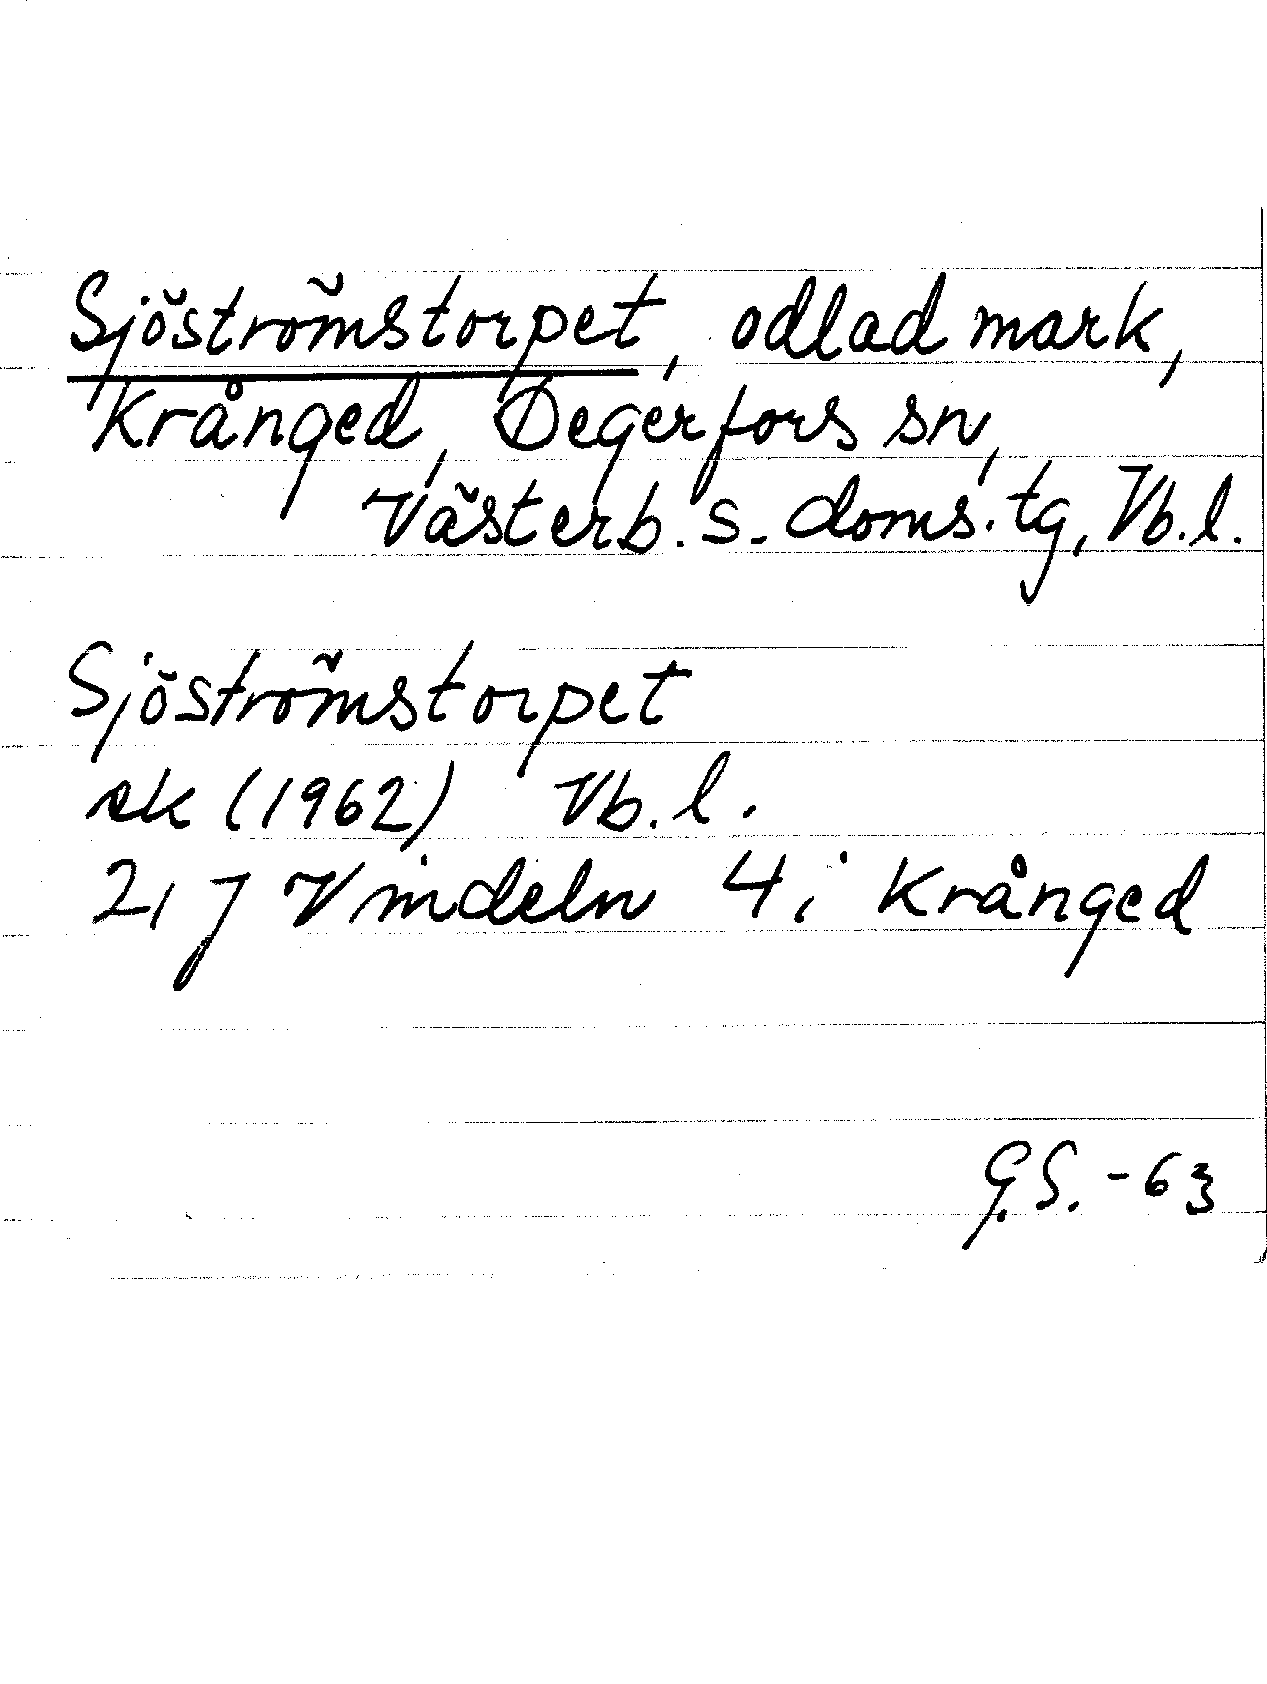 Sjöströmstorpet, odlad mark,
Krånged, Degerfors sn,
Västerb. s. doms. tg, Vb. l.
Sjöströmstorpet
ek (1962) Vb. l.
21 J Vindeln 4 i Krånged
G.S. - 63